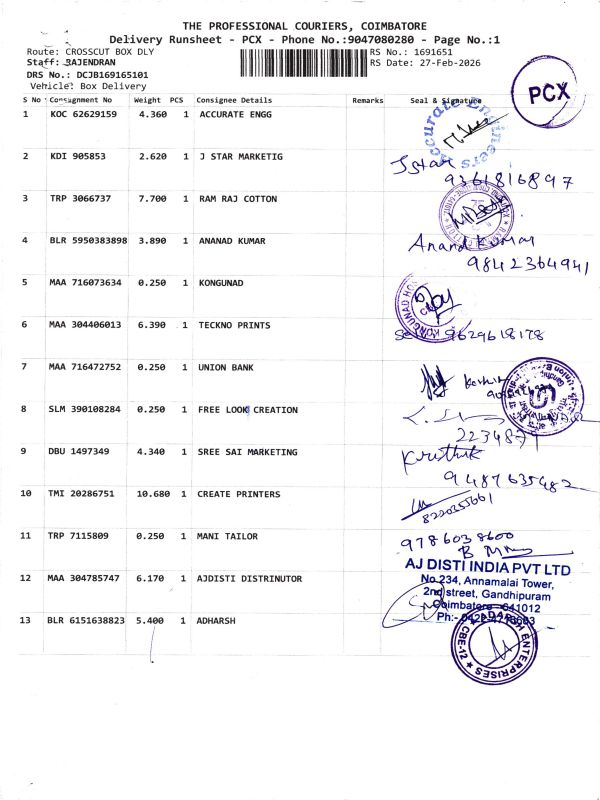 THE PROFESSIONAL COURIERS, COIMBATORE
Delivery Runsheet - PCX - Phone No.:9047080280 - Page No.:1
Route: CROSSCUT BOX DLY
RS No.: 1691651
Staff: RAJENDRAN
RS Date: 27-Feb-2026
DRS No.: DCJB169165101
Vehicle: Box Delivery
PCX
S No Consignment No Weight PCS Consignee Details Remarks Seal & Signature
1 KOC 62629159 4.360 1 ACCURATE ENGG
Accurate Engineers
2 KDI 905853 2.620 1 J STAR MARKETIG
Jstar
9361816897
3 TRP 3066737 7.700 1 RAM RAJ COTTON
4 BLR 5950383898 3.890 1 ANANAD KUMAR
Anand kumar
9842364941
5 MAA 716073634 0.250 1 KONGUNAD
KONGUNAD
6 MAA 304406013 6.390 1 TECKNO PRINTS
9629618178
7 MAA 716472752 0.250 1 UNION BANK
8 SLM 390108284 0.250 1 FREE LOOK CREATION
9 DBU 1497349 4.340 1 SREE SAI MARKETING
Kruthik
9487635482
10 TMI 20286751 10.680 1 CREATE PRINTERS
8220355661
11 TRP 7115809 0.250 1 MANI TAILOR
9786038600
12 MAA 304785747 6.170 1 AJDISTI DISTRINUTOR
AJ DISTI INDIA PVT LTD
No.234, Annamalai Tower,
2nd street, Gandhipuram
Coimbatore - 641012
13 BLR 6151638823 5.400 1 ADHARSH
ENTERPRISES
CBE-12